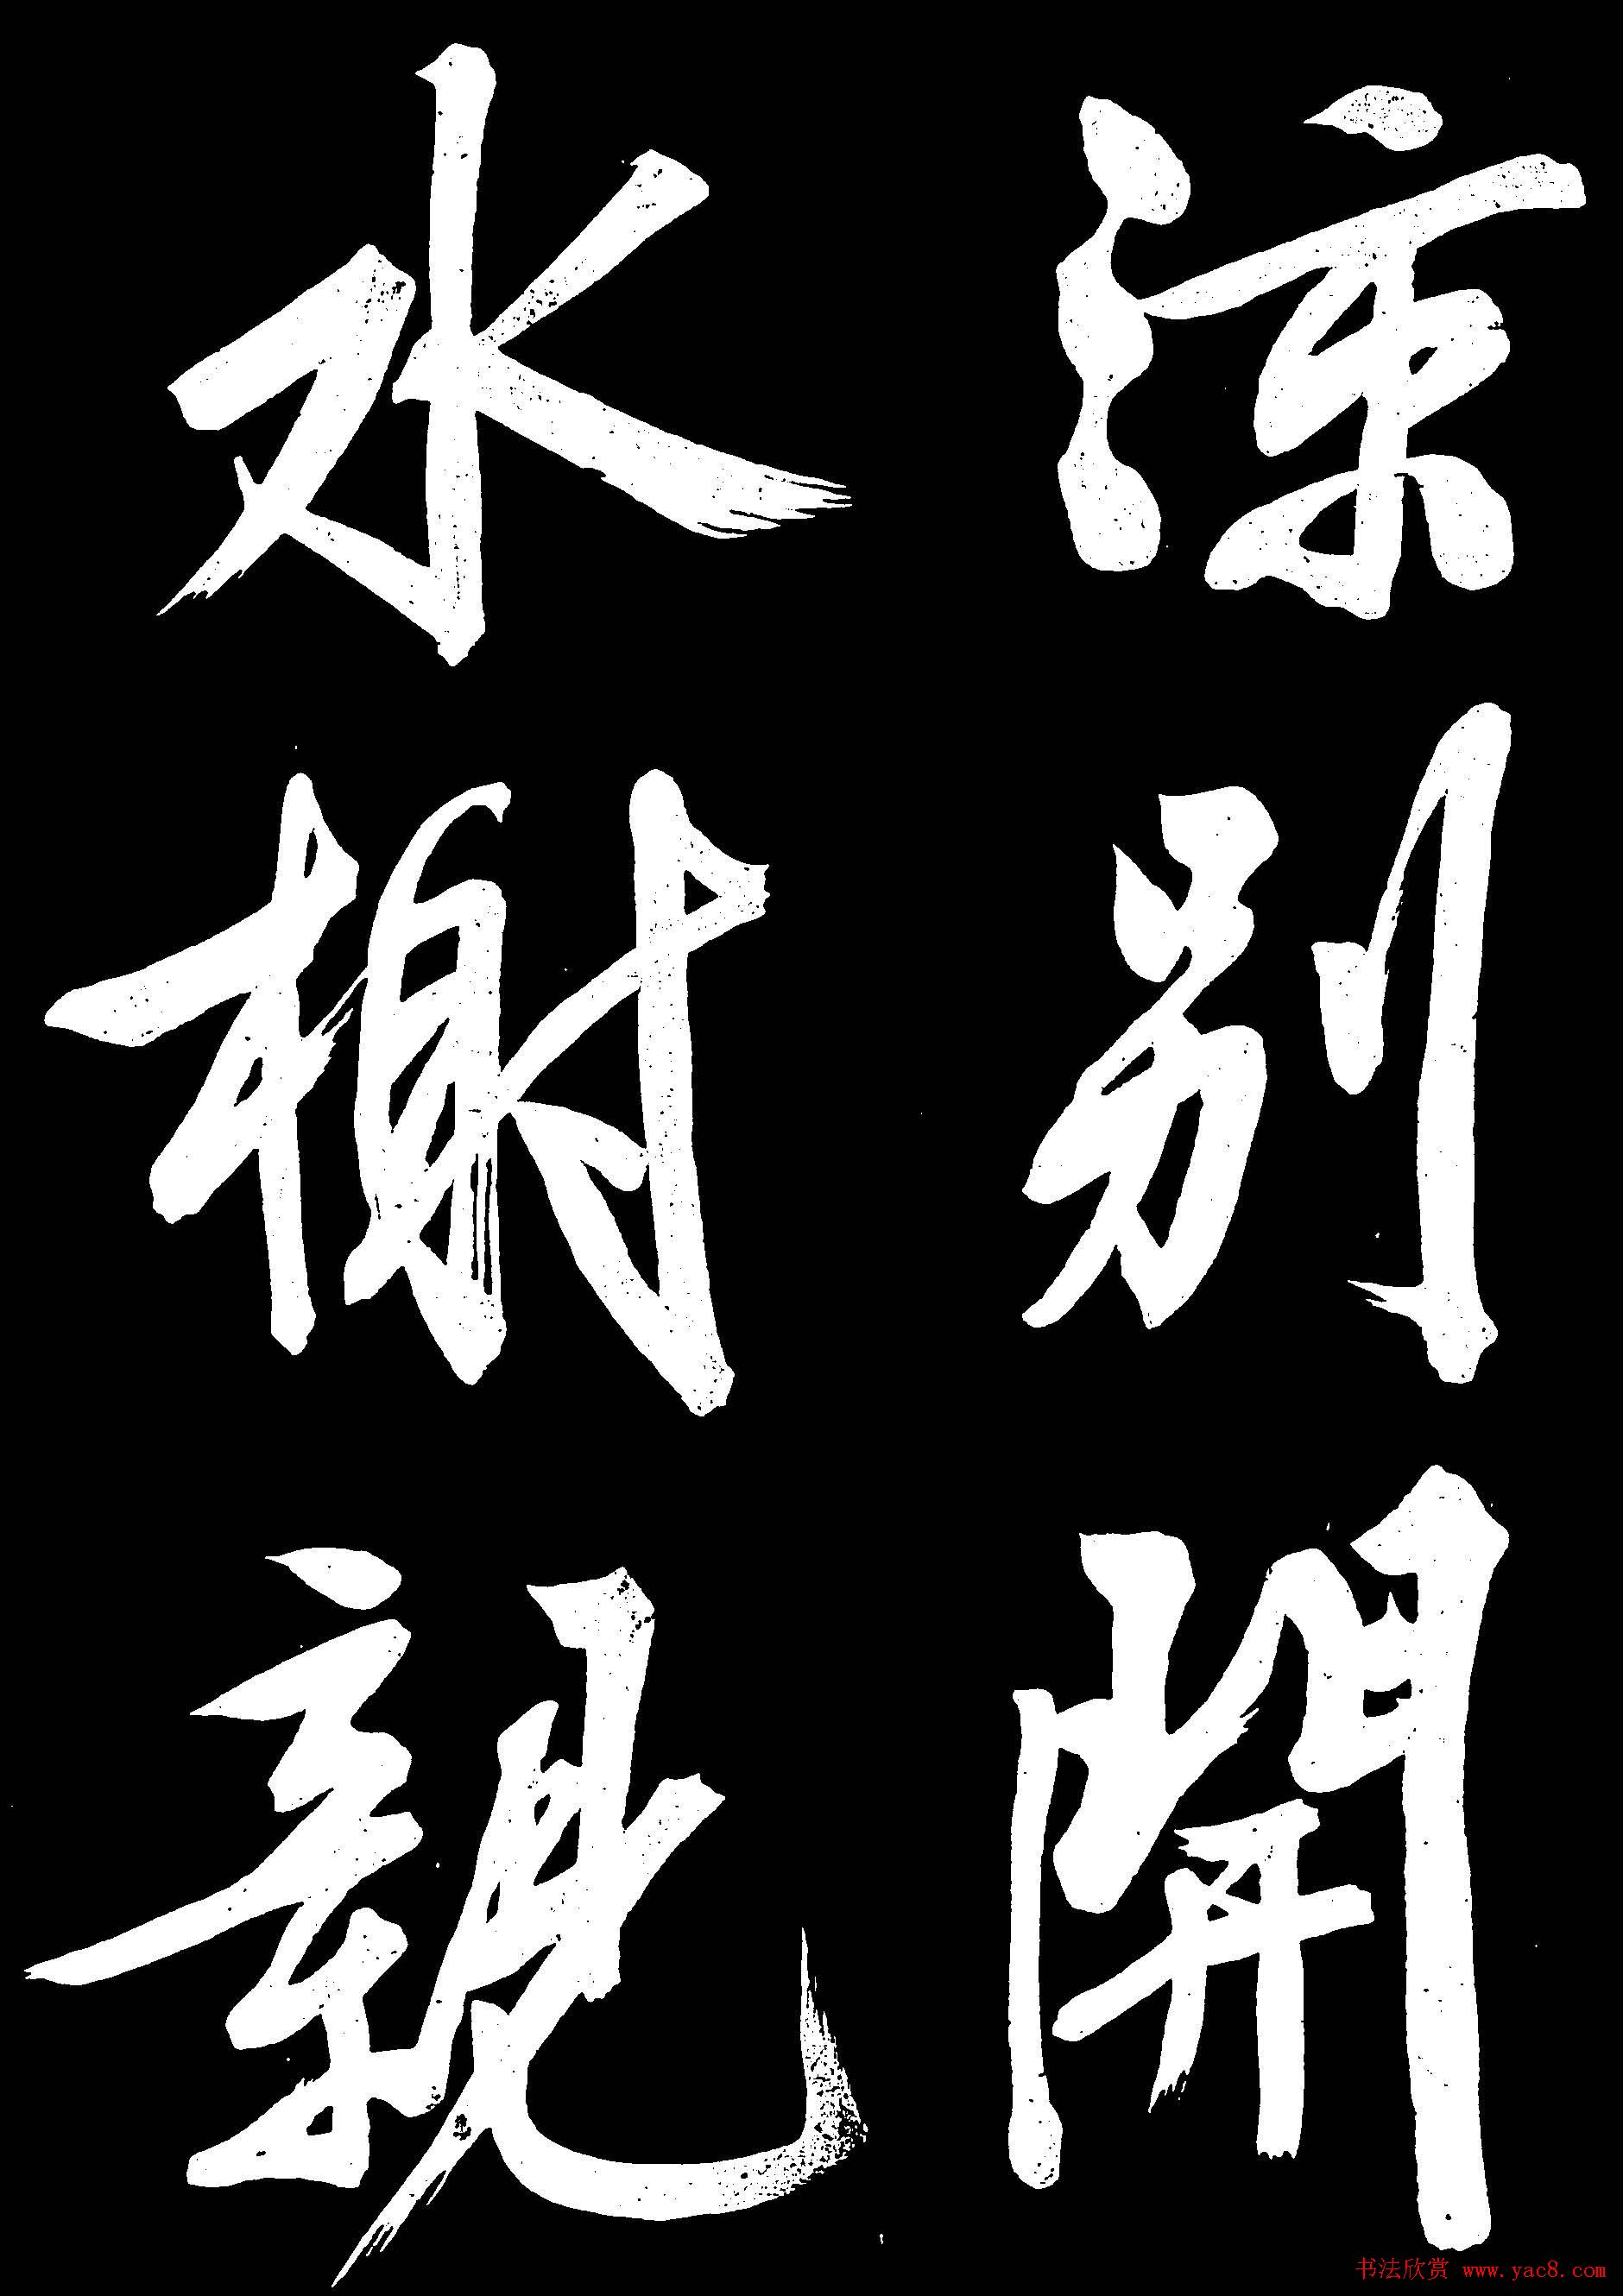 涼別開
水榭親
书法欣赏 www.yac8.com